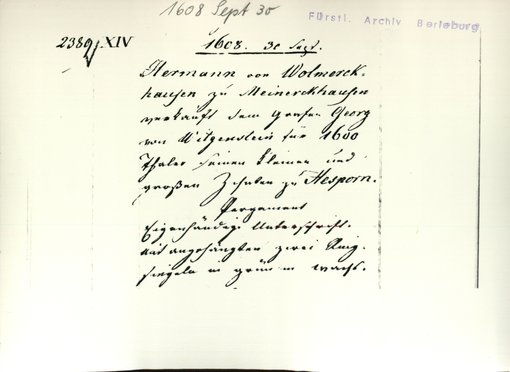 1608 Sept 30
Fürstl. Archiv Berleburg
2389 XIV
1608. 30 Sept.
Hermann von Wolmerck-
hausen zu Meinerckhausen
verkauft dem Grafen Georg
von Witgenstein für 1600
Thaler seinen kleinen und
großen Zehnten zu Hesporn.
Pergament
Eigenhändige Unterschrift.
mit angehängten zwei Ring-
siegeln in grünem Wachs.